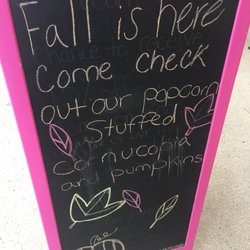 Fall is here
come check
out our popcorn
Stuffed
Cornucopia
and pumpkins